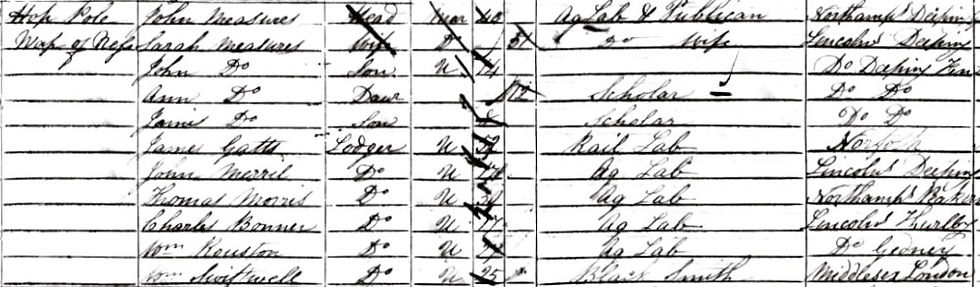 Hop Pole John Measures Head Mar 40 Ag Lab & Publican Northamps Deeping
Sarah Measures Wife Do 37 Do Wife Lincolns Deeping
John Do Son U 14 Do Deeping Fen
Ann Do Daur 12 Scholar Do Do
James Do Son Scholar Do Do
James Gatts Lodger U 52 Rail Lab Norfolk
John Merril Do U Ag Lab Lincolns Deeping
Thomas Morris Do U Ag Lab Northamps
Charles Bonner Do U 17 Ag Lab Lincolns Thurlby
Wm Do U Ag Lab Do Gedney
Wm Do U 25 Black Smith Middlesex London